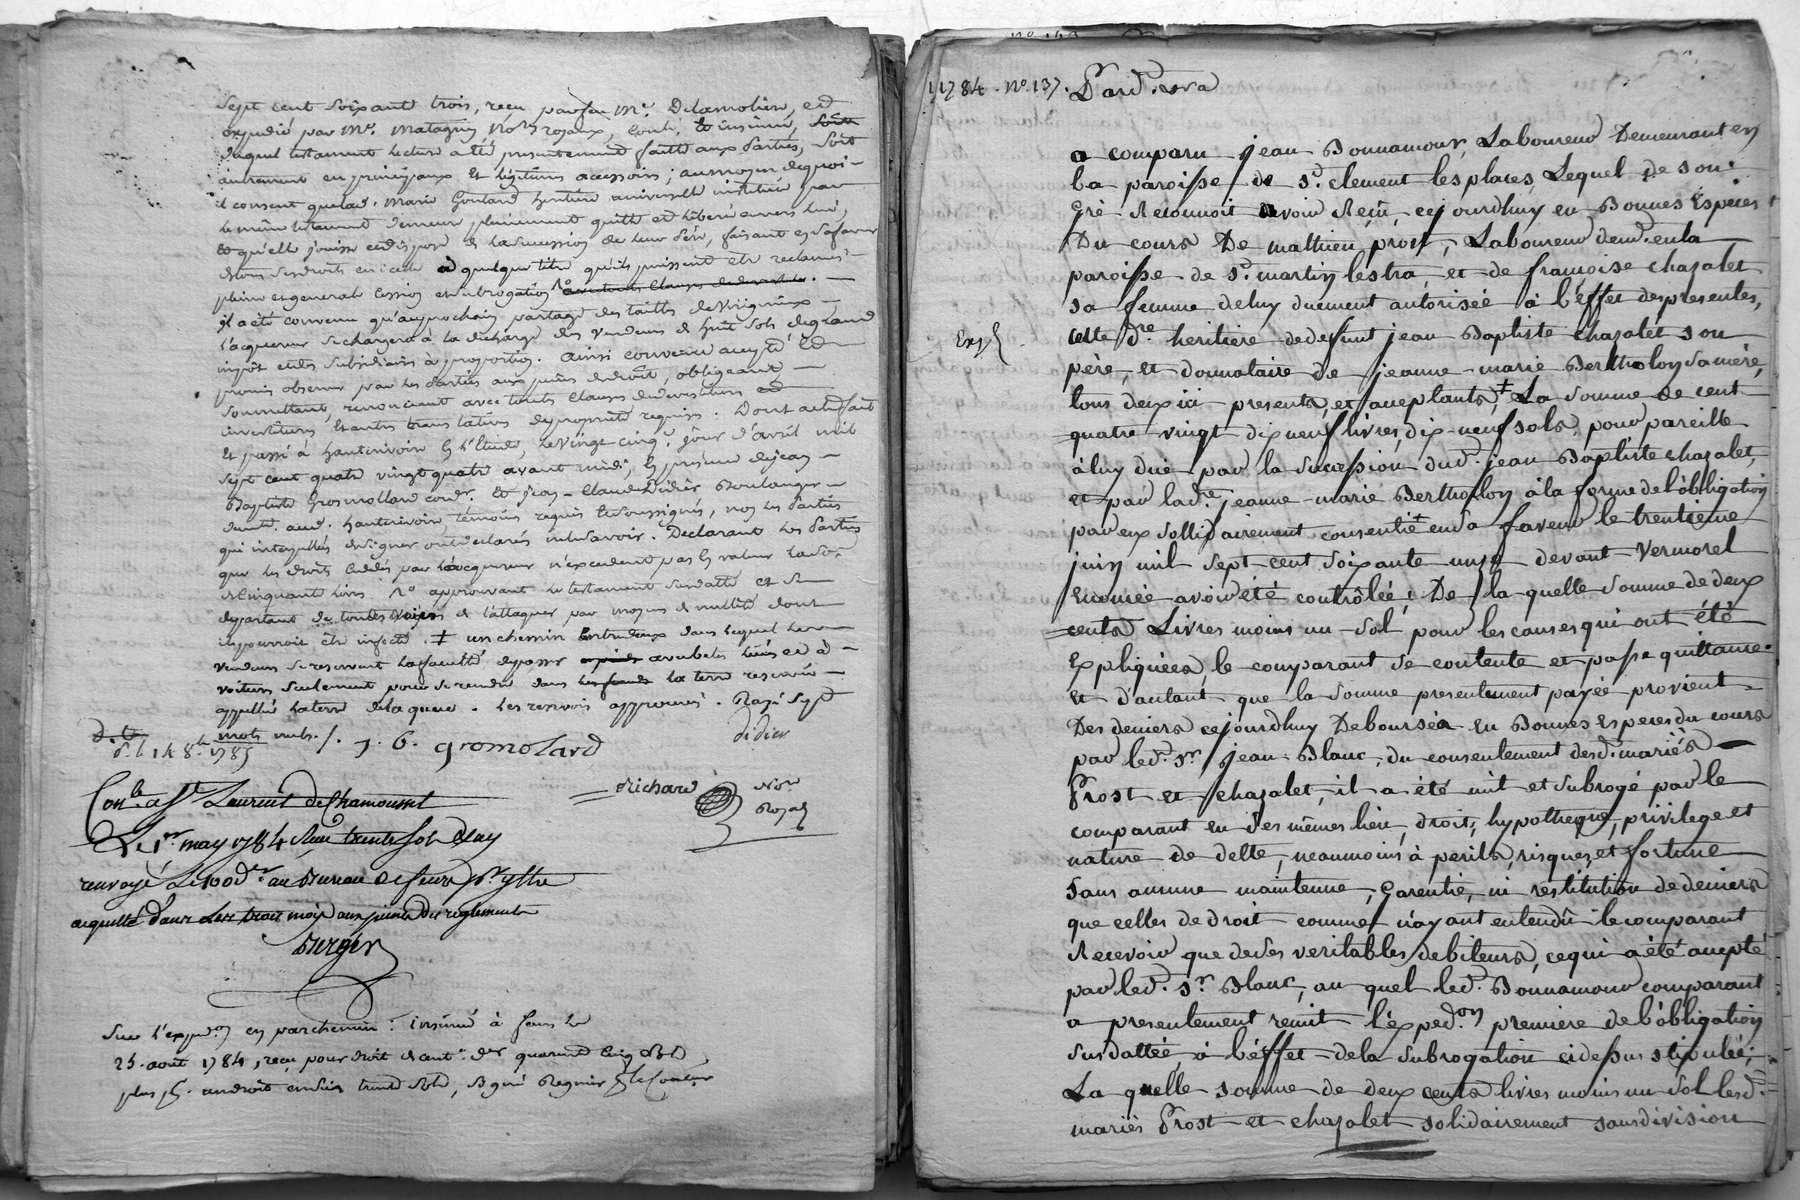 sept cent soixante trois, reçu par feu Me. Delamolière, et
expedié par Me. Matagrin No.re royaux, Contr. et insinué,
duquel testament lecture a été presentement faitte aux Parties, soit
autrement en principaux et légitimes accessoirs; au moyen de quoi -
il consent que lad. Marie Goutard heritière universelle instituée par
le même testament demeure pleinement quitte et libérée envers lui,
et qu'elle jouisse et dispose de la succession de leur Père, faisant en sa faveur
de tous ses droits en icelle à quelque titre qu'ils puissent etre reclamés -
pleine et generale cession et subrogation
il a été convenu qu'au prochain partage des tailles de Virigneux -
l'acquereur se chargera à la décharge des vendeurs de huit sols de grand
impôt et des subsidiaires à proportion. ainsi convenu accepté et
promis observer par les Parties aux peines de droit, obligeant, -
soumettant, renonceant avec toutes clauses de devestiture
investiture, et autres translatives de propriété requises. Dont acte fait
et passé à hauterivoire en l'Etude, le vingt cinq.e jour d'avril mil
sept cent quatre vingt quatre avant midi, en présence de jean -
Baptiste Gromollard cord.r et jean-Claude Didier Boulanger -
demt. aud. hauterivoire temoins requis et soussignés, non les Parties
qui interpellées de signer ont declarés ne le savoir. Declarant les Parties
que les droits cédés par l'acquereur n'excedent pas la valeur
de Cinquante livres. approuvant le testament susdatté et se
departant de toutes voyes de l'attaquer par moyens de nullité dont
il pourroit être infecté. ‡ un chemin entredeux dans lequel le -
vendeurs se reservent la faculté de passer avec betes liées et à -
voitures seulement pour se rendre dans la terre reservée -
appellée la terre de la queue. les renvois approuvés. Rayé sept
mots nuls. /. j. B. gromolard
didier
d. l. 14 8.bre 1785
Richard Nore.
Royal
Con.lé a St Laurent de Chamousset
Le 1er may 1784 Reçu trente sols Et ay
renvoyé Le 100d.er au Bureau de feurs pr. ystre
acquitté dans Les trois mois aux peines des reglements
Burgier
Sur l'exped.on en parchemin: insinué à feurs le
25 août 1784, reçu pour droit de cent.e der quarente Cinq sols
plus pr. audroit ensuir trente sols, signé Regnier pr le Conteur
1784. No. 137. Pard. vera
a comparu jean Bonnamour, Laboureur Demeurant en
la paroisse de St. clement les places, Lequel de son
gré Reconnoit avoir Reçu, cejourdhuy en Bonnes Especes
Du cours De mathieu prost, Laboureur demt. en la
paroisse de St. martin lestra, et de françoise chazalet
sa femme de luy duement autorisée à l'effet des presentes,
Exp.
cette dre. heritiere de defunt jean Baptiste chazalet son
père, et donnataire de jeanne-marie Bertholon sa mère,
tous deux ici presents, et acceptants, ‡ La somme de cent
quatre vingt dix neuf livres, dix-neuf sols, pour pareille
à luy düe par la succession dud. jean Baptiste chazalet,
et par ladre. jeanne-marie Bertholon à la forme de l'obligation
par eux sollidairement consentie en sa faveur le trentieme
juin mil sept-cent soixante onze devant Vermorel
Enoncée avoir été contrôlée; De la quelle somme de deux
cents Livres moins un-sol pour les causes qui ont été
Expliquées, le comparant se contente et passe quittance.
et d'autant que la somme presentement payée provient
Des deniers cejourdhuy Deboursés en Bonnes Especes du cours
par led. sr. jean Blanc, du consentement desd. mariés -
Prost et chazalet, il a été mit et subrogé par le
comparant en ses mêmes lieu, droit, hypotheque, privilege et
nature de dette, neanmoins à perils, risques, et fortune
sans aucune maintenue, garentie, ni restitution de deniers
que celles de droit comme n'ayant entendû le comparant
Recevoir que de ses veritables debiteurs, ce qui a été accepté
par led. sr. Blanc, au quel led. Bonnamour comparant
a presentement remit l'exped.on premiere de l'obligation
susdattée à l'effet de la subrogation ci dessus stipulée;
La quelle somme de deux cents livres moins un sol lesd.
mariés Prost et chazalet solidairement sans division